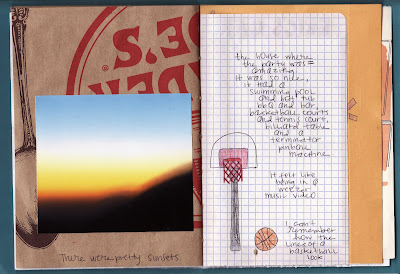 There were pretty sunsets.
the house where
the party was=
amazing
it was so nice,
it had a
swimming pool
and hot tub
bbq and bar,
basketball courts
and tennis court,
billiard table
and a
terminator
pinball
machine
It felt like
being in a
weezer
music video
I can't
remember
how the
lines of a
basketball
look